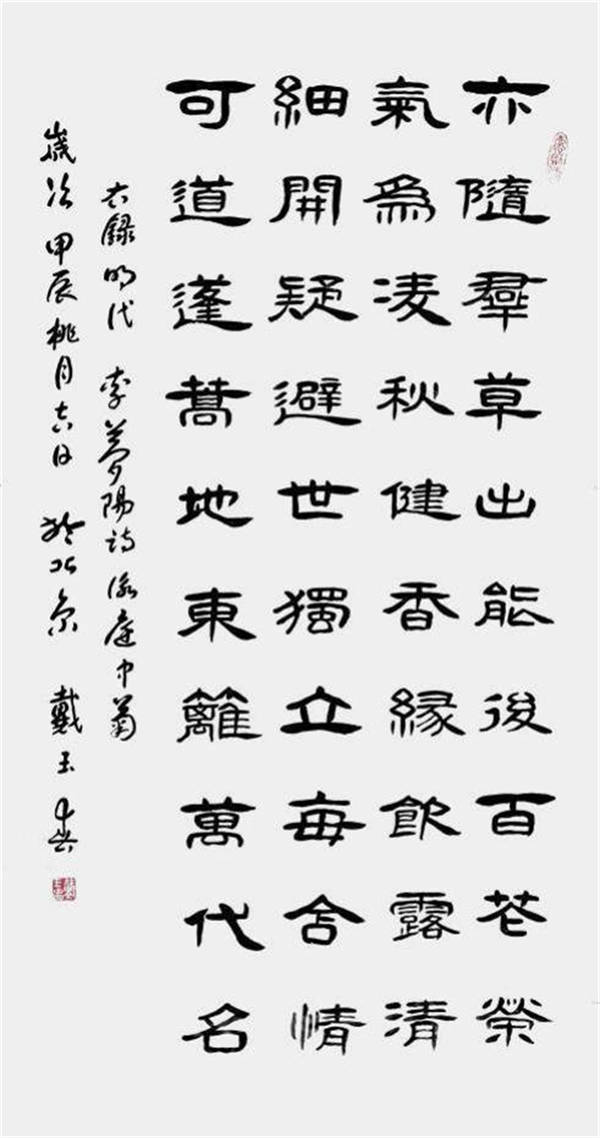 亦隨羣草出能後百花榮
氣為凌秋健香緣飲露清
細開疑避世獨立每含情
可道蓬蒿地東籬萬代名
右録明代 李夢陽詩 詠庭中菊
歲次甲辰桃月六日 於北京 戴玉